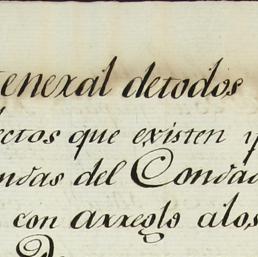 enexal detodos
ectos que existen y
ndas del Condad
con arreglo alos
De